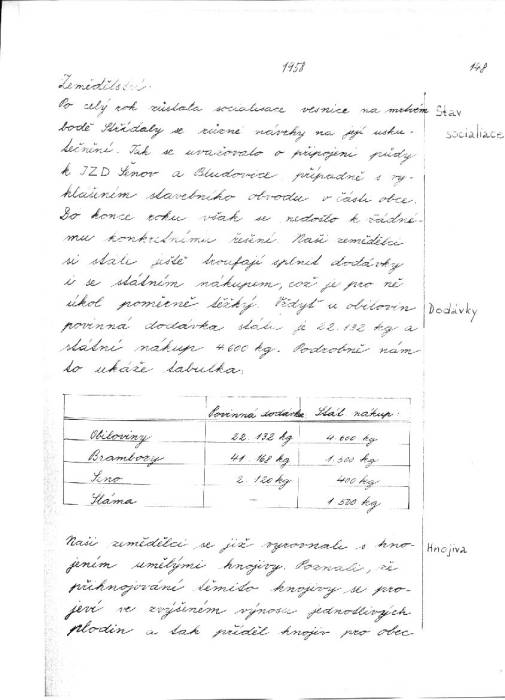 1958
148
Zemědělství.
Po celý rok zůstala socialisace vesnice na mrtvém
Stav
bodě Střídaly se různé návrhy na její usku-
socialiace
tečnění. Tak se uvažovalo o připojení půdy
k JZD Šenov a Bludovice, případně s vy-
klučením stavebního obvodu v části obce.
Do konce roku však se nedošlo k žádné-
mu konkretnímu řešení. Naši zemědělci
si stále ještě troufají splnit dodávky
i se státním nákupem, což je pro ně
úkol poměrně těžký. Vždyť u obilovin
Dodávky
povinná dodávka státu je 22.132 kg a
státní nákup 4.600 kg. Podrobně nám
to ukáže tabulka:
Povinná dodávka Stát. nákup:
Obiloviny 22.132 kg 4.600 kg
Brambory 41.168 kg 1.500 kg
Seno 2.120 kg 400 kg
Sláma – 1 500 kg
Naši zemědělci se již vyrovnali s hno-
Hnojiva
jením umělými hnojivy. Poznali, že
přihnojování těmito hnojivy se pro-
jeví ve zvýšeném výnosu jednotlivých
plodin a tak příděl hnojiv pro obec